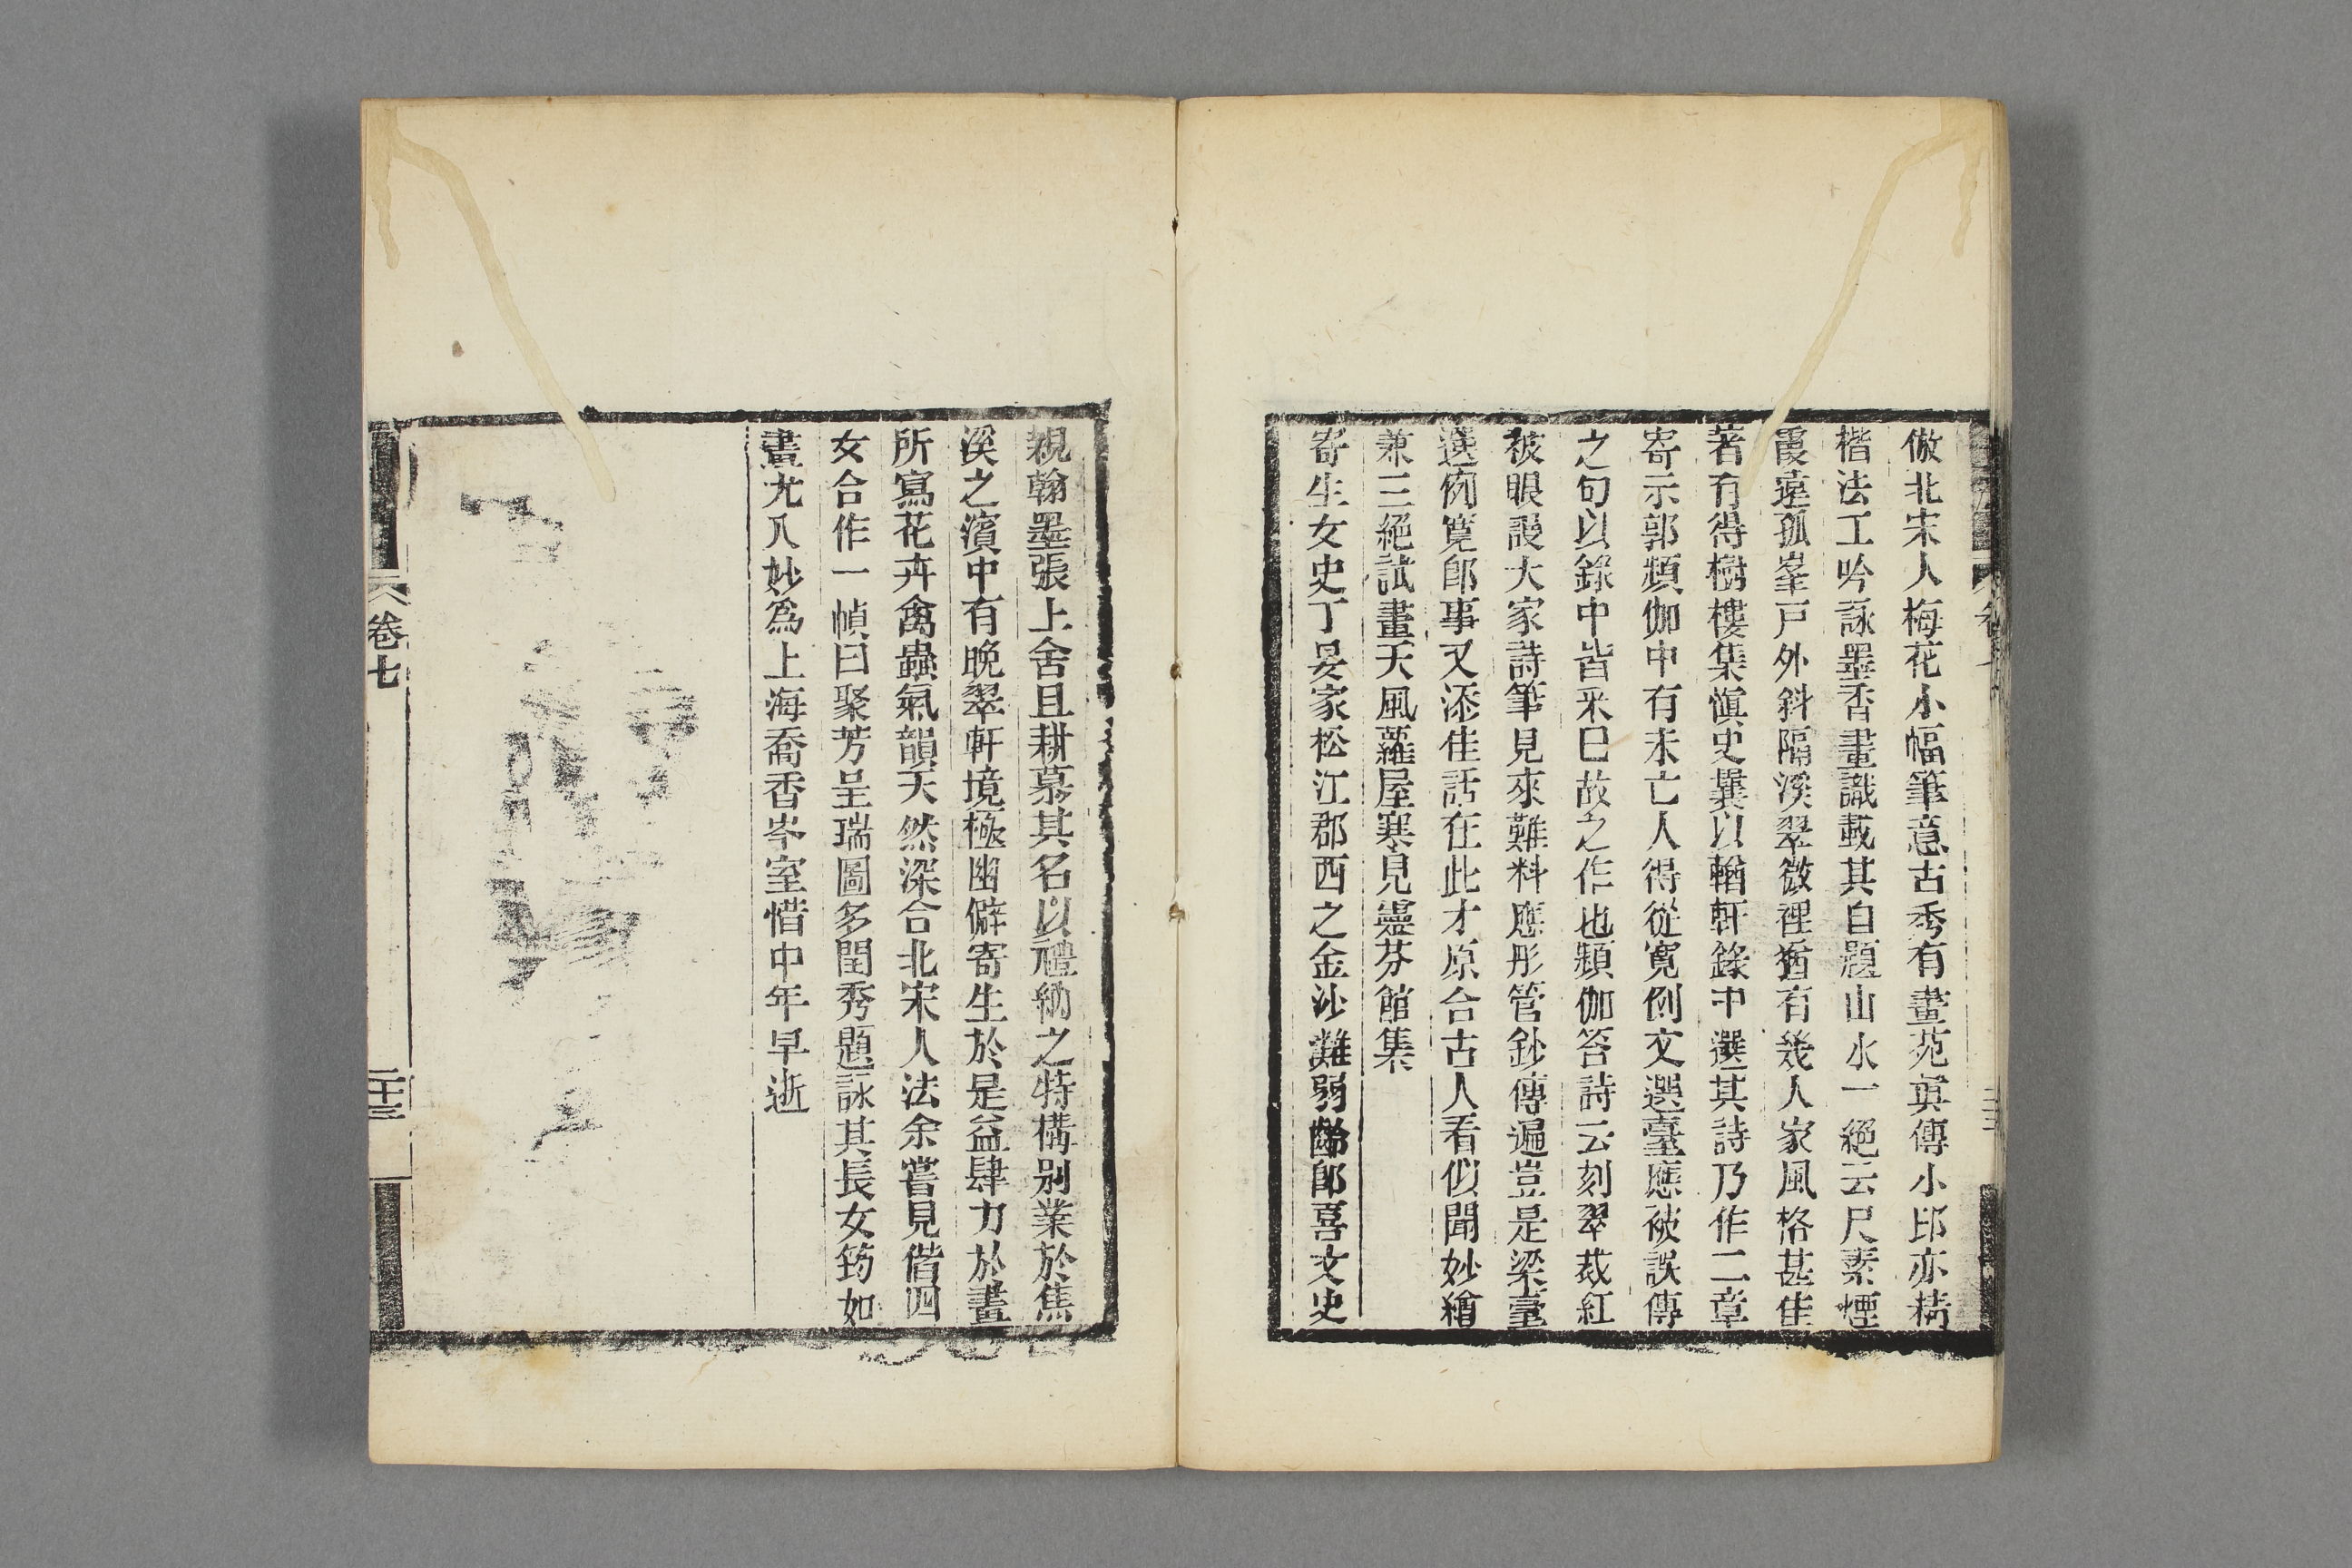 倣北宋人梅花小幅筆意古秀有畫苑真傳小印亦精
楷法工吟詠墨香畫識載其自題山水一絕云尺素煙
霞遠孤峯戸外斜隔溪翠微裡猶有幾人家風格甚佳
著有得樹樓集愼史曩以輶軒錄中選其詩乃作二章
寄示郭頻伽中有未亡人得從寬例文選臺應被誤傳
之句以錄中皆采巳故之作也頻伽答詩云刻翠裁紅
被眼謾大家詩筆見來難料應彤管鈔傳遍豈是梁臺
選例寬郎事又添佳話在此才原合古人看似聞妙繪
兼三絕試畫天風蘿屋寒見靈芬館集
寄生女史丁晏家松江郡西之金沙灘弱齡卽喜文史
親翰墨張上舍且耕慕其名以禮納之特構別業於焦
溪之濱中有晚翠軒境極幽僻寄生於是益肆力於畫
所寫花卉禽蟲氣韻天然深合北宋人法余嘗見偕四
女合作一幀曰聚芳呈瑞圖多閨秀題詠其長女筠如
畫尤入妙爲上海喬香岑室惜中年早逝
卷七
二十三